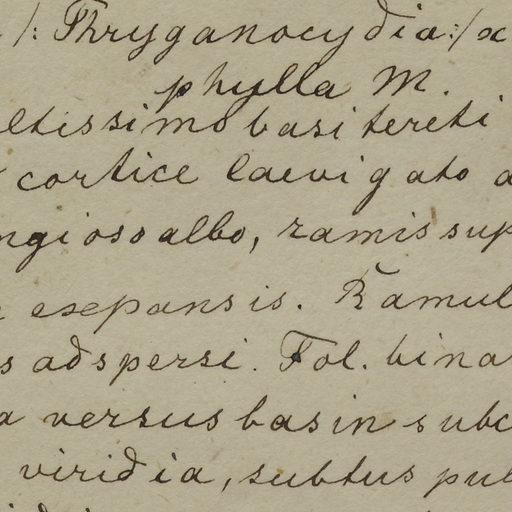 /: Thryganocydia :/ x
phylla M.
eltissimo basi tereti
cortice laevigato a
ngioso albo, ramis sup
expansis. Ramul
s adspersi. Fol. bina
a versus basin subc
viridia, subtus pub